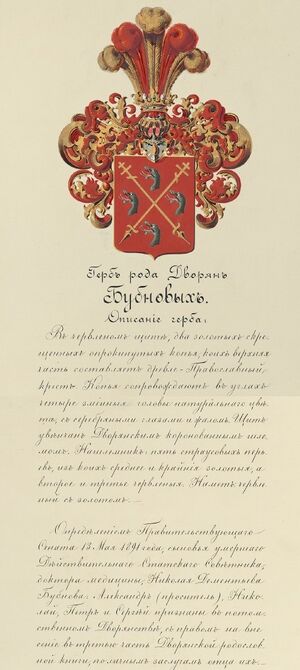 Гербъ рода Дворянъ
Бубновыхъ.
Описаніе герба:
Въ червленомъ щитѣ, два золотыхъ скре-
щенныхъ опрокинутыхъ копья, коихъ верхняя
часть составляетъ древле-Православный
крестъ. Копья сопровождаютъ въ углахъ
четыре змѣиныя головы натуральнаго цвѣ-
та, съ серебряными глазами и жаломъ. Щитъ
увѣнчанъ Дворянскимъ коронованнымъ шле-
момъ. Нашлемникъ: пять страусовыхъ перь-
евъ, изъ коихъ среднее и крайнія золотыя, а
второе и третье червленыя. Наметъ: червле-
ный съ золотомъ.—
Опредѣленіемъ Правительствующаго
Сената 13 Мая 1891 года, сыновья умершаго
Дѣйствительнаго Статскаго Совѣтника,
доктора медицины, Николая Дементьева
Бубнова: Александръ (проситель), Нико-
лай, Петръ и Сергѣй признаны въ потом-
ственномъ Дворянствѣ, съ правомъ на вне-
сеніе въ третью часть Дворянской родослов-
ной книги, по личнымъ заслугамъ отца ихъ.—